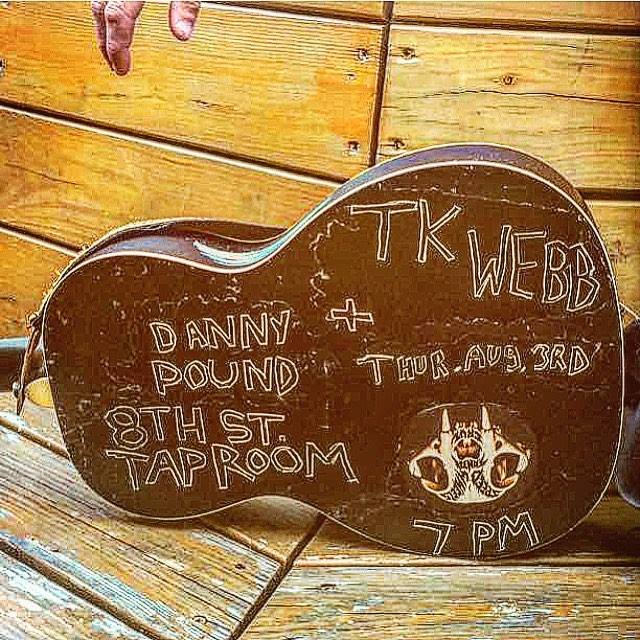 TK WEBB
+
DANNY
POUND
THUR. AUG. 3RD
8TH ST.
TAPROOM
7 PM